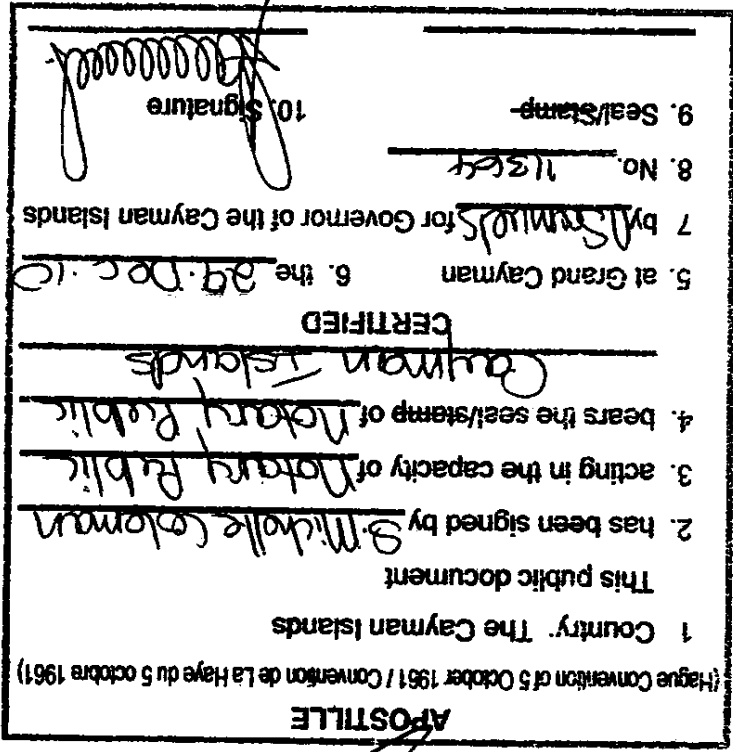 APOSTILLE
(Hague Convention of 5 October 1961 / Convention de La Haye du 5 octobre 1961)
1 Country: The Cayman Islands
This public document
2. has been signed by S. Michelle Coleman
3. acting in the capacity of Notary Public
4. bears the seal/stamp of Notary Public
Cayman Islands
CERTIFIED
5. at Grand Cayman 6. the 29. Dec. 10
7 by for Governor of the Cayman Islands
8. No. 11364
9. Seal/Stamp 10. Signature